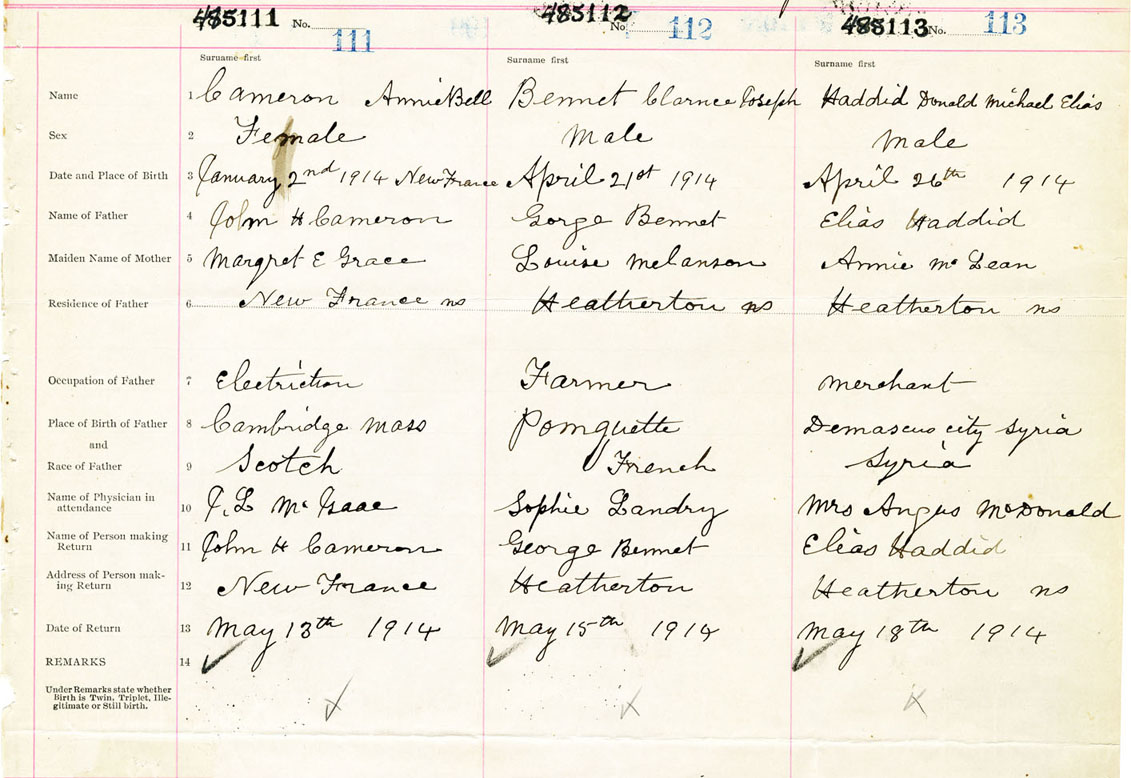 485111 No. 111 485112 No. 112 485113 No. 113
Surname first Surname first Surname first
Name 1 Cameron AnnieBell Bennet Clarnce Joseph Haddid Donald Michael Elias
Sex 2 Female Male Male
Date and Place of Birth 3 January 2nd 1914 New France April 21st 1914 April 26th 1914
Name of Father 4 John H Cameron Gorge Bennet Elias Haddid
Maiden Name of Mother 5 Margret E Grace Louise Melanson Annie Mc Lean
Residence of Father 6 New France ns Heatherton ns Heatherton ns
Occupation of Father 7 Electriction Farmer Merchant
Place of Birth of Father 8 Cambridge Mass Pomquette Demascus city Syria
and
Race of Father 9 Scotch French Syria
Name of Physician in
attendance 10 J. L Mc Isaac Sophie Landry Mrs Angus McDonald
Name of Person making
Return 11 John H Cameron George Bennet Elias Haddid
Address of Person mak-
ing Return 12 New France Heatherton Heatherton ns
Date of Return 13 May 13th 1914 May 15th 1914 May 18th 1914
REMARKS 14
Under Remarks state whether
Birth is Twin, Triplet, Ille-
gitimate or Still birth.